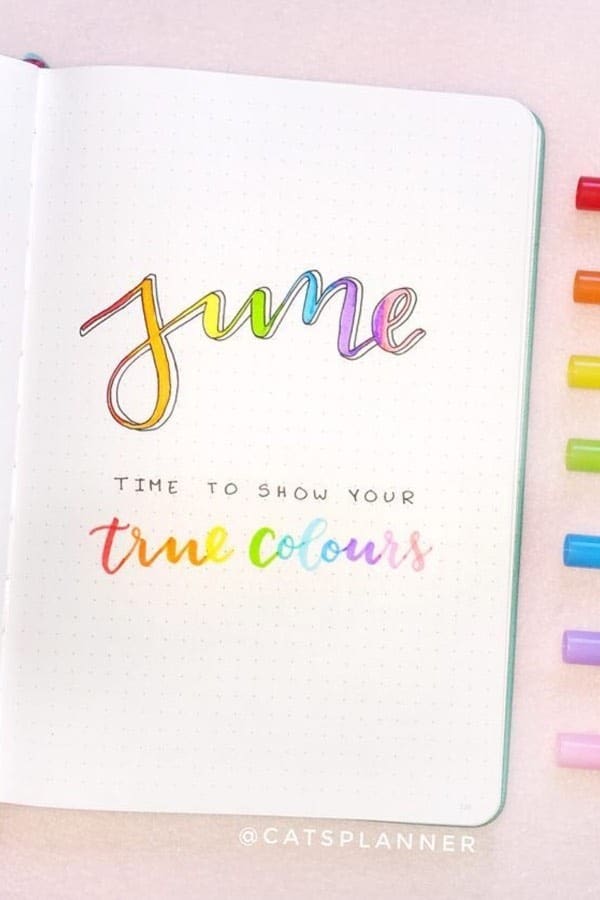 june
TIME TO SHOW YOUR
true colours
@CATSPLANNER